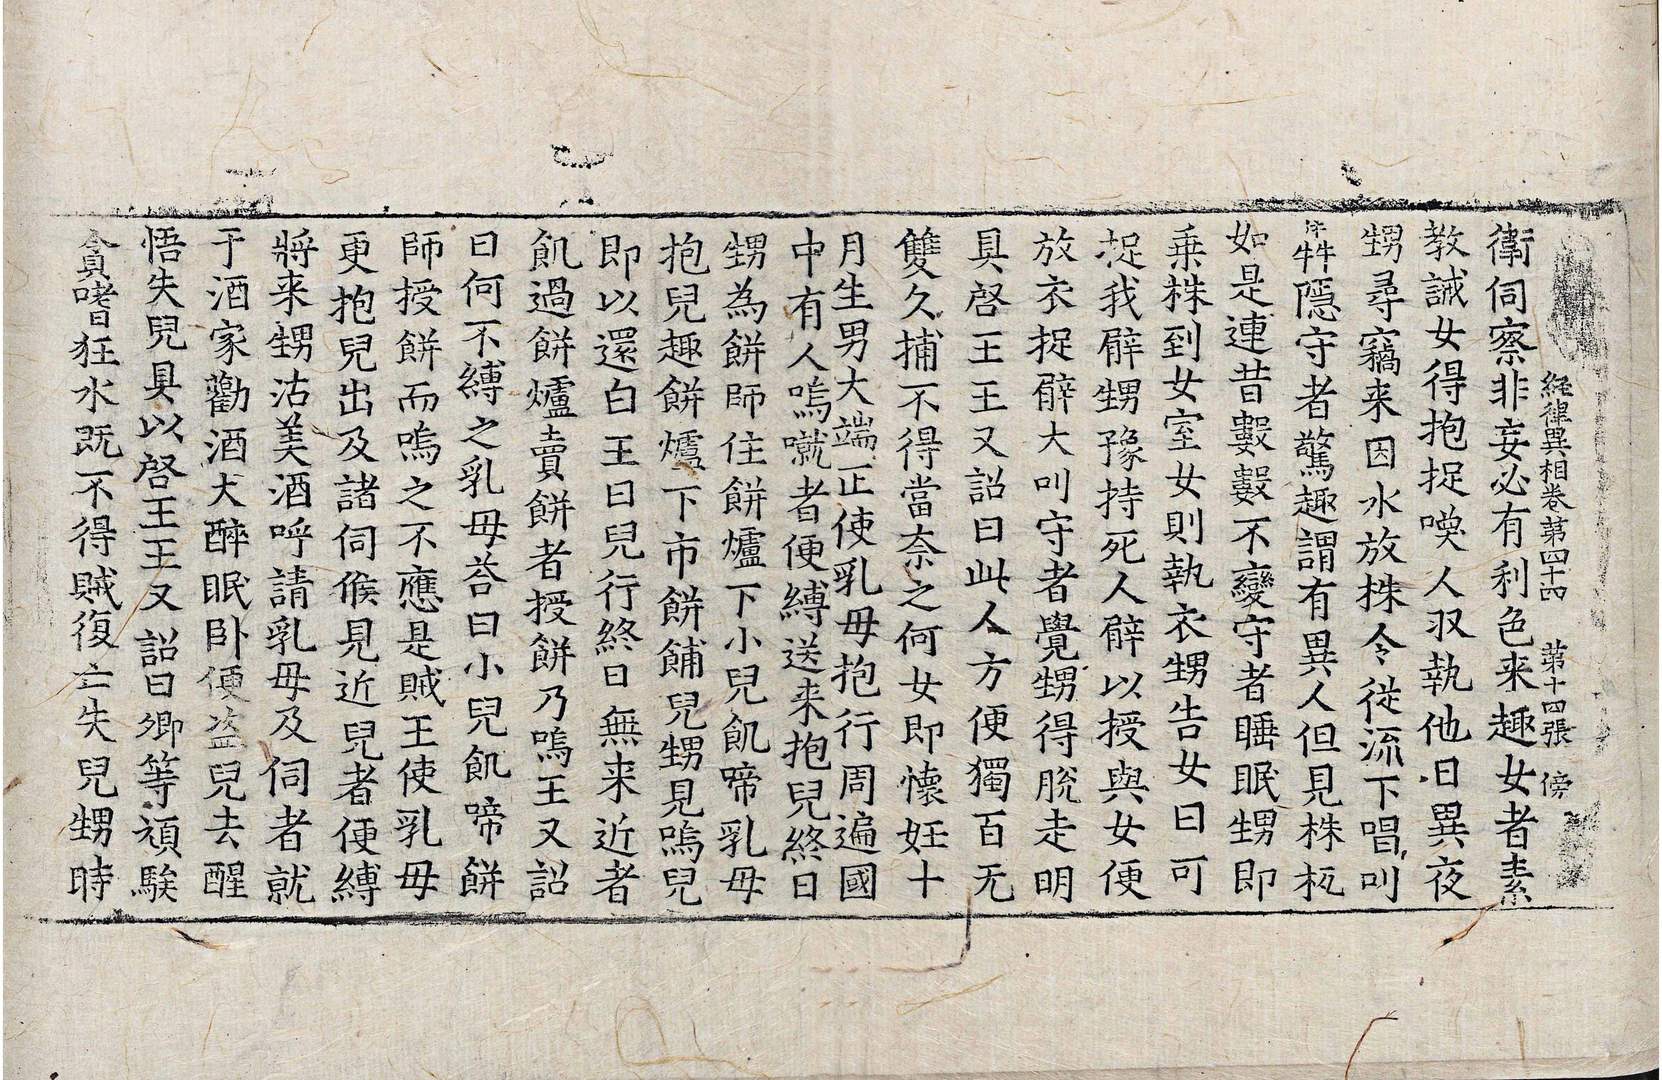 經律異相卷第四十四 第十四張 傍
衛伺察非妄必有利色来趣女者素
教誡女得抱捉喚人収執他日異夜
甥尋竊来因水放株令從流下唱叫
犇隱守者驚趣謂有異人但見株杌
如是連昔數數不變守者睡眠甥即
乗株到女室女則執衣甥告女曰可
捉我臂甥豫持死人臂以授與女便
放衣捉臂大叫守者覺甥得脫走明
具啓王王又詔曰此人方便獨百无
雙久捕不得當奈之何女即懷妊十
月生男大端正使乳母抱行周遍國
中有人嗚噈者便縛送来抱兒終日
甥為餅師住餅爐下小兒飢啼乳母
抱兒趣餅爐下市餅餔兒甥見嗚兒
即以還白王曰兒行終日無来近者
飢過餅爐賣餅者授餅乃嗚王又詔
曰何不縛之乳母荅曰小兒飢啼餅
師授餅而嗚之不應是賊王使乳母
更抱兒出及諸伺候見近兒者便縛
將来甥沽美酒呼請乳母及伺者就
于酒家勸酒大醉眠卧便盗兒去醒
悟失兒具以啓王王又詔曰卿等頑騃
貪嗜狂水既不得賊復亡失兒甥時